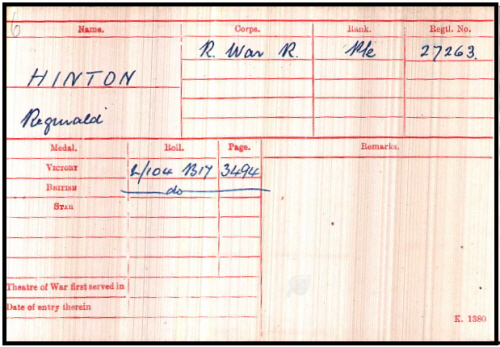 6
Name. Corps. Rank. Regtl. No.
R. War R. Pte 27263.
HINTON
Reginald
Medal. Roll. Page. Remarks.
VICTORY L/104 B17 3494
BRITISH do
STAR
Theatre of War first served in
Date of entry therein
K. 1380